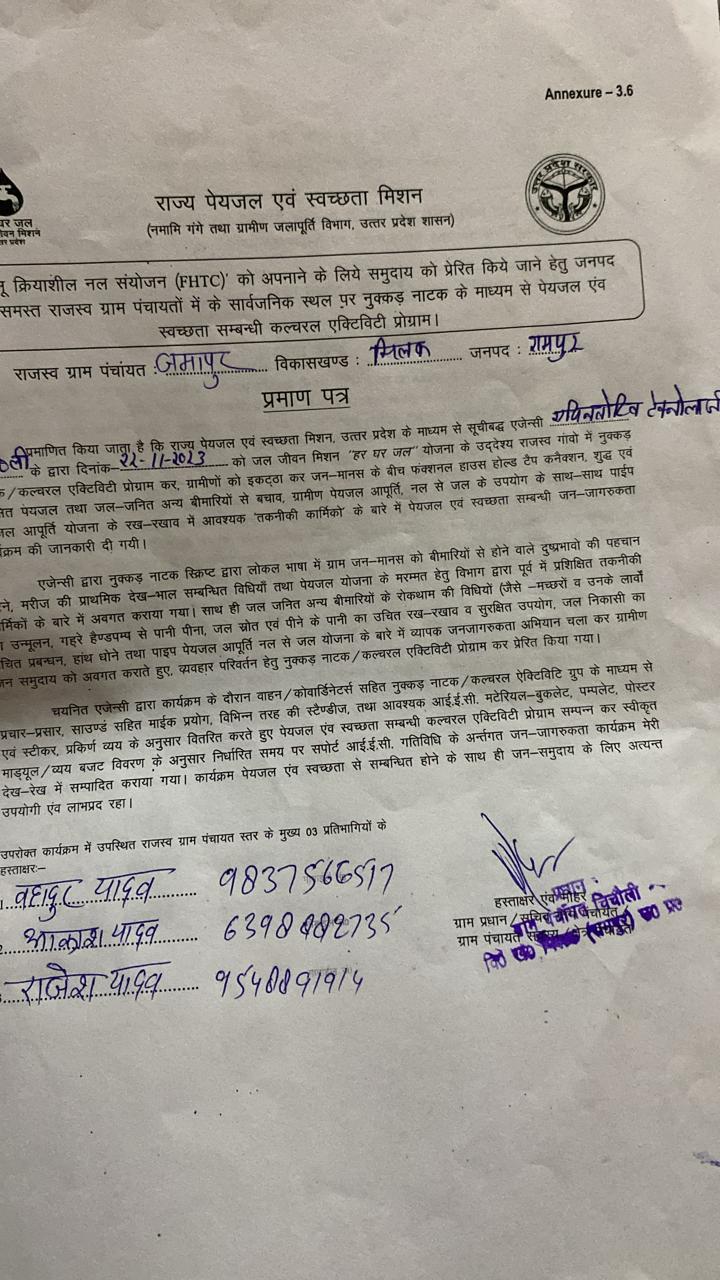 Annexure – 3.6
राज्य पेयजल एवं स्वच्छता मिशन
(नमामि गंगे तथा ग्रामीण जलापूर्ति विभाग, उत्तर प्रदेश शासन)
उत्तर प्रदेश सरकार
क्रियाशील नल संयोजन (FHTC)' को अपनाने के लिये समुदाय को प्रेरित किये जाने हेतु जनपद
समस्त राजस्व ग्राम पंचायतों में के सार्वजनिक स्थल पर नुक्कड़ नाटक के माध्यम से पेयजल एंव
स्वच्छता सम्बन्धी कल्चरल एक्टिविटी प्रोग्राम।
राजस्व ग्राम पंचांयत : जमापुर विकासखण्ड : मिलक जनपद : रामपुर
प्रमाण पत्र
प्रमाणित किया जाता है कि राज्य पेयजल एवं स्वच्छता मिशन, उत्तर प्रदेश के माध्यम से सूचीबद्ध एजेन्सी
के द्वारा दिनांक 22-11-2023 को जल जीवन मिशन "हर घर जल" योजना के उद्देश्य राजस्व गांवो में नुक्कड़
/कल्चरल एक्टिविटी प्रोग्राम कर, ग्रामीणों को इकट्ठा कर जन-मानस के बीच फंक्शनल हाउस होल्ड टैप कनैक्शन, शुद्ध एवं
पेयजल तथा जल-जनित अन्य बीमारियों से बचाव, ग्रामीण पेयजल आपूर्ति, नल से जल के उपयोग के साथ-साथ पाईप
आपूर्ति योजना के रख-रखाव में आवश्यक 'तकनीकी कार्मिको' के बारे में पेयजल एवं स्वच्छता सम्बन्धी जन-जागरुकता
की जानकारी दी गयी।
एजेन्सी द्वारा नुक्कड़ नाटक स्क्रिप्ट द्वारा लोकल भाषा में ग्राम जन-मानस को बीमारियों से होने वाले दुष्प्रभावो की पहचान
मरीज की प्राथमिक देख-भाल सम्बन्धित विधियाँ तथा पेयजल योजना के मरम्मत हेतु विभाग द्वारा पूर्व में प्रशिक्षित तकनीकी
के बारे में अवगत कराया गया। साथ ही जल जनित अन्य बीमारियों के रोकथाम की विधियों (जैसे -मच्छरों व उनके लार्वो
उन्मूलन, गहरे हैण्डपम्प से पानी पीना, जल स्रोत एवं पीने के पानी का उचित रख-रखाव व सुरक्षित उपयोग, जल निकासी का
प्रबन्धन, हांथ धोने तथा पाइप पेयजल आपूर्ति नल से जल योजना के बारे में व्यापक जनजागरुकता अभियान चला कर ग्रामीण
समुदाय को अवगत कराते हुए, व्यवहार परिवर्तन हेतु नुक्कड़ नाटक/कल्चरल एक्टिविटी प्रोग्राम कर प्रेरित किया गया।
चयनित एजेन्सी द्वारा कार्यक्रम के दौरान वाहन/कोवार्डिनेटर्स सहित नुक्कड़ नाटक/कल्चरल ऐक्टिविटि ग्रुप के माध्यम से
प्रचार-प्रसार, साउण्ड सहित माईक प्रयोग, विभिन्न तरह की स्टैण्डीज, तथा आवश्यक आई.ई.सी. मटेरियल-बुकलेट, पम्पलेट, पोस्टर
एवं स्टीकर, प्रकिर्ण व्यय के अनुसार वितरित करते हुए पेयजल एंव स्वच्छता सम्बन्धी कल्चरल एक्टिविटी प्रोग्राम सम्पन्न कर स्वीकृत
माड्यूल/व्यय बजट विवरण के अनुसार निर्धारित समय पर सपोर्ट आई.ई.सी. गतिविधि के अर्न्तगत जन-जागरुकता कार्यक्रम मेरी
देख-रेख में सम्पादित कराया गया। कार्यक्रम पेयजल एंव स्वच्छता से सम्बन्धित होने के साथ ही जन-समुदाय के लिए अत्यन्त
उपयोगी एंव लाभप्रद रहा।
उपरोक्त कार्यक्रम में उपस्थित राजस्व ग्राम पंचायत स्तर के मुख्य 03 प्रतिभागियों के
हस्ताक्षरः-
वहादुर यादव 9837566517
आकाश यादव
राजेश यादव 9548891914
हस्ताक्षर एवं मोहर
ग्राम प्रधान/सचिव ग्राम पंचायत/
ग्राम पंचायत सदस्य
प्रधान